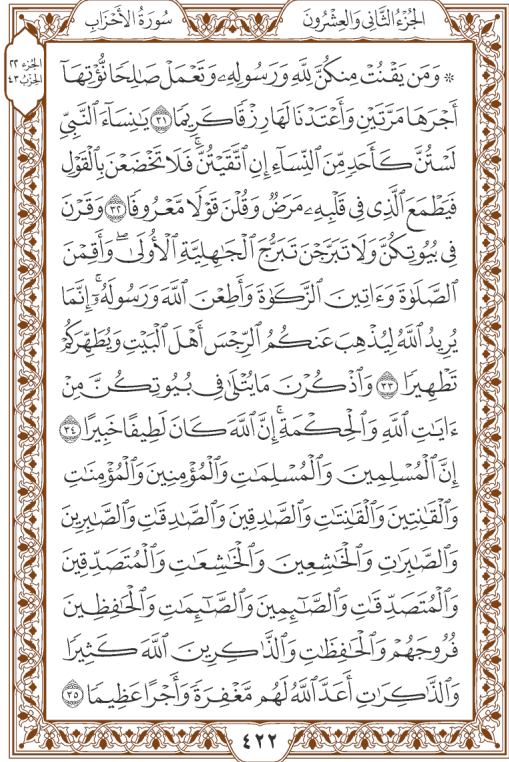 الجُزْءُ الثَّانِي وَالعِشْرُونَ
سُورَةُ الأَحْزَابِ
الجزء ٢٢
الحزب ٤٣
۞ وَمَن يَقْنُتْ مِنكُنَّ لِلَّهِ وَرَسُولِهِۦ وَتَعْمَلْ صَٰلِحًا نُّؤْتِهَآ
أَجْرَهَا مَرَّتَيْنِ وَأَعْتَدْنَا لَهَا رِزْقًا كَرِيمًا ٣١ يَٰنِسَآءَ ٱلنَّبِيِّ
لَسْتُنَّ كَأَحَدٍ مِّنَ ٱلنِّسَآءِ إِنِ ٱتَّقَيْتُنَّۚ فَلَا تَخْضَعْنَ بِٱلْقَوْلِ
فَيَطْمَعَ ٱلَّذِي فِي قَلْبِهِۦ مَرَضٌ وَقُلْنَ قَوْلًا مَّعْرُوفًا ٣٢ وَقَرْنَ
فِي بُيُوتِكُنَّ وَلَا تَبَرَّجْنَ تَبَرُّجَ ٱلْجَٰهِلِيَّةِ ٱلْأُولَىٰۖ وَأَقِمْنَ
ٱلصَّلَوٰةَ وَءَاتِينَ ٱلزَّكَوٰةَ وَأَطِعْنَ ٱللَّهَ وَرَسُولَهُۥٓۚ إِنَّمَا
يُرِيدُ ٱللَّهُ لِيُذْهِبَ عَنكُمُ ٱلرِّجْسَ أَهْلَ ٱلْبَيْتِ وَيُطَهِّرَكُمْ
تَطْهِيرًا ٣٣ وَٱذْكُرْنَ مَا يُتْلَىٰ فِي بُيُوتِكُنَّ مِنْ
ءَايَٰتِ ٱللَّهِ وَٱلْحِكْمَةِۚ إِنَّ ٱللَّهَ كَانَ لَطِيفًا خَبِيرًا ٣٤
إِنَّ ٱلْمُسْلِمِينَ وَٱلْمُسْلِمَٰتِ وَٱلْمُؤْمِنِينَ وَٱلْمُؤْمِنَٰتِ
وَٱلْقَٰنِتِينَ وَٱلْقَٰنِتَٰتِ وَٱلصَّٰدِقِينَ وَٱلصَّٰدِقَٰتِ وَٱلصَّٰبِرِينَ
وَٱلصَّٰبِرَٰتِ وَٱلْخَٰشِعِينَ وَٱلْخَٰشِعَٰتِ وَٱلْمُتَصَدِّقِينَ
وَٱلْمُتَصَدِّقَٰتِ وَٱلصَّٰٓئِمِينَ وَٱلصَّٰٓئِمَٰتِ وَٱلْحَٰفِظِينَ
فُرُوجَهُمْ وَٱلْحَٰفِظَٰتِ وَٱلذَّٰكِرِينَ ٱللَّهَ كَثِيرًا
وَٱلذَّٰكِرَٰتِ أَعَدَّ ٱللَّهُ لَهُم مَّغْفِرَةً وَأَجْرًا عَظِيمًا ٣٥
٤٢٢